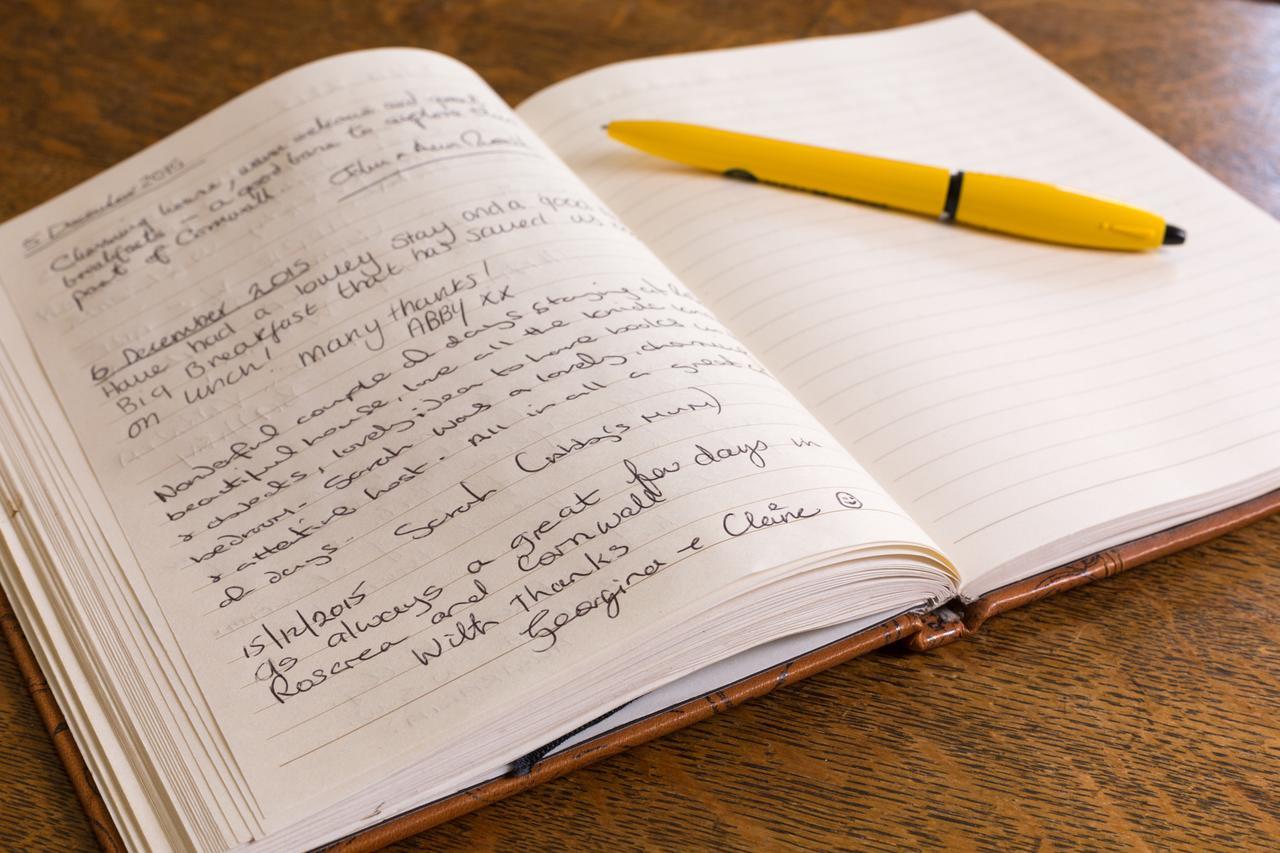 5 December 2015
Charming house, warm welcome and great
breakfasts - a good base to explore this
part of Cornwall
John & Ann
6 December 2015
Have had a lovley stay and a good
Big Breakfast that has saved us
on lunch! many thanks!
ABBY xx
Wonderful couple of days staying at
beautiful house, love all the
& objects, lovely idea to have books in
bedroom. Sarah was a lovely, charming
& attentive host. All in all a great
2 days. Sarah (Abby's MUM)
15/12/2015
as always a great few days in
Roscrea and Cornwall
With thanks
Georgina & Claire